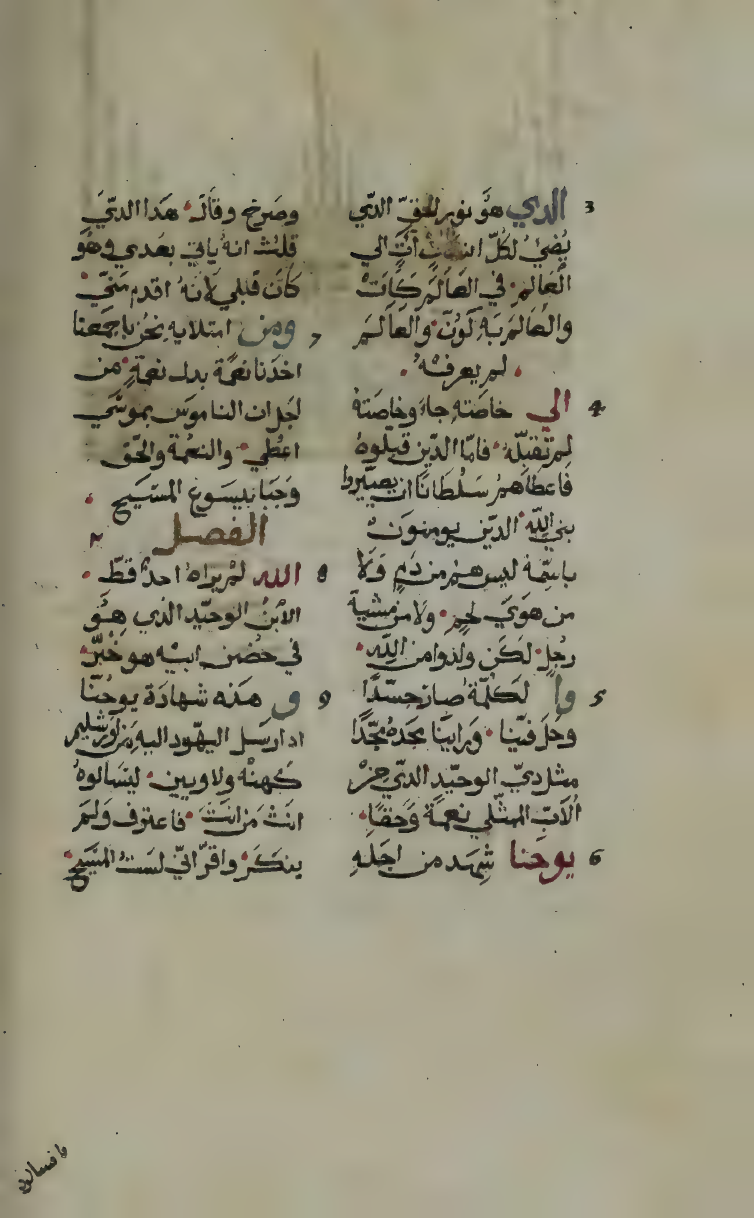 3 الذي هو نور الحق الذي
يضيُ لكل انسان آتٍ الي
العالم في العالم كانْ
والعالم به كون والعالم
لم يعرفهُ
4 الي خاصته جاء وخاصته
لم تقبله فامّا الذين قبلوهُ
فاعطاهم سلطانًا ان يصيروا
بني الله الذين يومنون
باسمه ليس هم من دمٍ ولا
من هوي لحمٍ ولا من مشية
رجلٍ لكن ولدوا من الله
5 وا لكلمة صار جسدًا
وحل فينا وراينا مجده مجدًا
مثل دي الوحيد الذي من
الآب الممتلي نعمة وحقًا
6 يوحنا شهد من اجله
وصرخ وقال هدا الدي
قلت انه ياتي بعدي وهو
كان قبلي لانهُ اقدم مني
7 ومن امتلايه نحن باجمعنا
اخدنا نعمة بدل نعمةٍ من
اجل ان الناموس بموسي
اعطي والنعمة والحق
وجبا بيسوع المسيح
الفصل ٢
8 الله لم يراهُ احدٌ قط
الابنُ الوحيد الدي هو
في حضن ابيه هو خبّر
9 و هده شهادة يوحنا
اد ارسل اليهود اليه من اورشليم
كهنة ولاويين ليسالوهُ
انتْ من انتَ فاعترف ولم
ينكر واقرّ اني لست المسيح